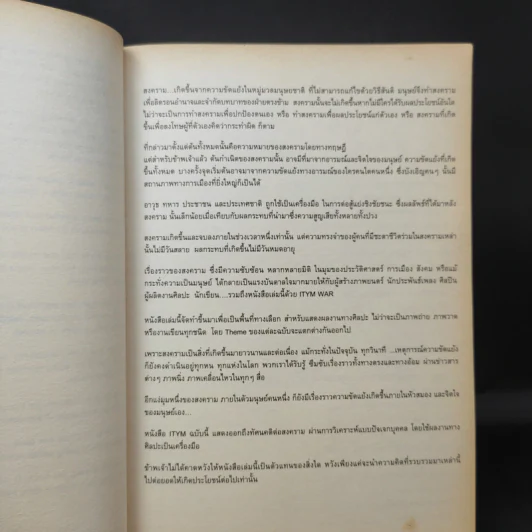 สงคราม...เกิดขึ้นจากความขัดแย้งในหมู่มวลมนุษยชาติ ที่ไม่สามารถแก้ไขด้วยวิธีสันติ มนุษย์จึงทำสงคราม
เพื่อลิดรอนอำนาจและจำกัดบทบาทของฝ่ายตรงข้าม สงครามนั้นจะไม่เกิดขึ้นหากไม่มีใครได้รับผลประโยชน์อันใด
ไม่ว่าจะเป็นการทำสงครามเพื่อปกป้องตนเอง หรือ ทำสงครามเพื่อผลประโยชน์แก่ตัวเอง หรือ สงครามที่เกิด
ขึ้นเพื่อลงโทษผู้ที่ตัวเองคิดว่ากระทำผิด ก็ตาม
ที่กล่าวมาตั้งแต่ต้นทั้งหมดนั้นคือความหมายของสงครามโดยทางทฤษฎี
แต่สำหรับข้าพเจ้าแล้ว ต้นกำเนิดของสงครามนั้น อาจมีที่มาจากอารมณ์และจิตใจของมนุษย์ ความขัดแย้งที่เกิด
ขึ้นทั้งหมด บางครั้งจุดเริ่มต้นอาจมาจากความขัดแย้งทางอารมณ์ของใครคนใดคนหนึ่ง ซึ่งบังเอิญคนๆ นั้นมี
สถานภาพทางการเมืองที่ยิ่งใหญ่ก็เป็นได้
อาวุธ ทหาร ประชาชน และประเทศชาติ ถูกใช้เป็นเครื่องมือ ในการต่อสู้แย่งชิงชัยชนะ ซึ่งผลลัพธ์ที่ได้มาหลัง
สงคราม นั้นเล็กน้อยเมื่อเทียบกับผลกระทบที่นำมาซึ่งความสูญเสียทั้งหลายทั้งปวง
สงครามเกิดขึ้นและจบลงภายในช่วงเวลาหนึ่งเท่านั้น แต่ความทรงจำของผู้คนที่มีชะตาชีวิตร่วมในสงครามเหล่า
นั้นไม่มีวันสลาย ผลกระทบที่เกิดขึ้นไม่มีวันหมดอายุ
เรื่องราวของสงคราม ซึ่งมีความซับซ้อน หลากหลายมิติ ในมุมของประวัติศาสตร์ การเมือง สังคม หรือแม้
กระทั่งความเป็นมนุษย์ ได้กลายเป็นแรงบันดาลใจมากมายให้กับผู้สร้างภาพยนตร์ นักประพันธ์เพลง ศิลปิน
ผู้ผลิตงานศิลปะ นักเขียน....รวมถึงหนังสือเล่มนี้ด้วย ITYM WAR
หนังสือเล่มนี้จัดทำขึ้นมาเพื่อเป็นพื้นที่ทางเลือก สำหรับแสดงผลงานทางศิลปะ ไม่ว่าจะเป็นภาพถ่าย ภาพวาด
หรืองานเขียนทุกชนิด โดย Theme ของแต่ละฉบับจะแตกต่างกันออกไป
เพราะสงครามเป็นสิ่งที่เกิดขึ้นมายาวนานและต่อเนื่อง แม้กระทั่งในปัจจุบัน ทุกวินาที ...เหตุการณ์ความขัดแย้ง
ก็ยังคงดำเนินอยู่ทุกหน ทุกแห่งในโลก พวกเราได้รับรู้ ซึมซับเรื่องราวทั้งทางตรงและทางอ้อม ผ่านข่าวสาร
ต่างๆ ภาพนิ่ง ภาพเคลื่อนไหวในทุกๆ สื่อ
อีกแง่มุมหนึ่งของสงคราม ภายในตัวมนุษย์คนหนึ่ง ก็ยังมีเรื่องราวความขัดแย้งเกิดขึ้นภายในหัวสมอง และจิตใจ
ของมนุษย์เอง...
หนังสือ ITYM ฉบับนี้ แสดงออกถึงทัศนคติต่อสงคราม ผ่านการวิเคราะห์แบบปัจเจกบุคคล โดยใช้ผลงานทาง
ศิลปะเป็นเครื่องมือ
ข้าพเจ้าไม่ได้คาดหวังให้หนังสือเล่มนี้เป็นตัวแทนของสิ่งใด หวังเพียงแค่จะนำความคิดที่รวบรวมมาเหล่านี้
ไปต่อยอดให้เกิดประโยชน์ต่อไปเท่านั้น